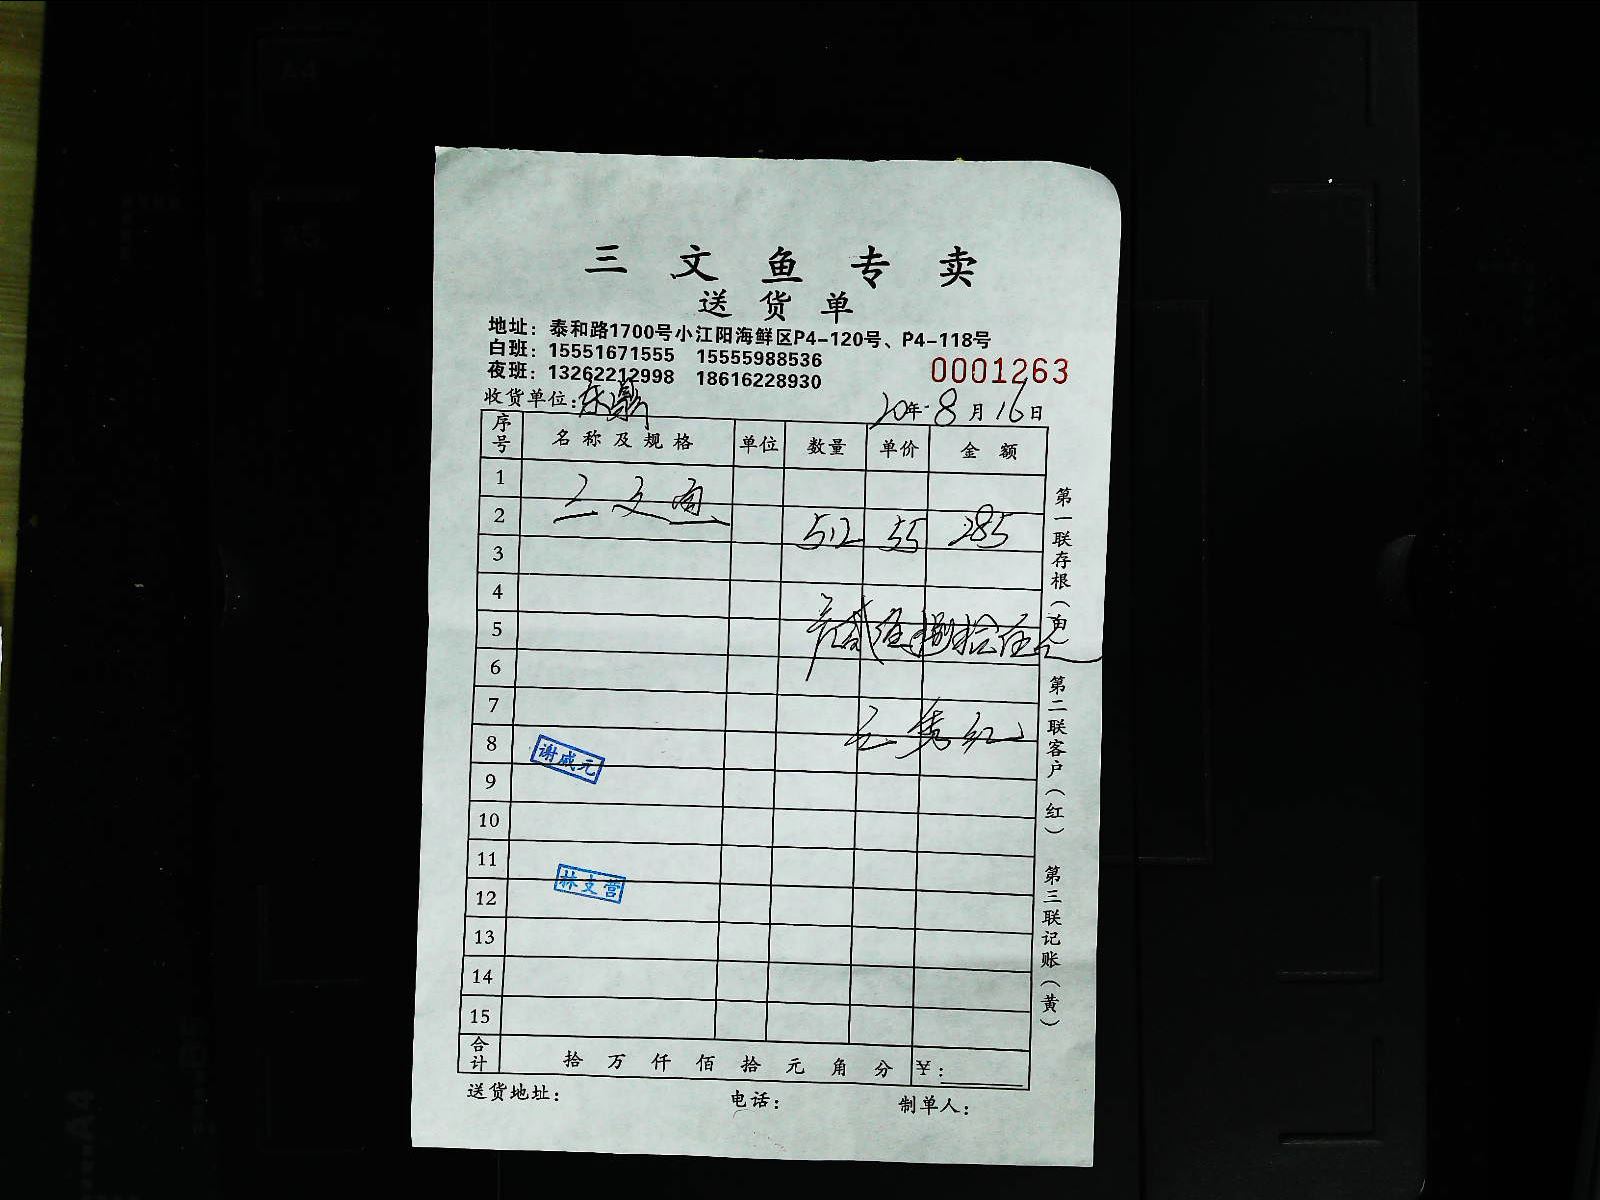 三文鱼专卖
送货单
地址：泰和路1700号小江阳海鲜区P4-120号、P4-118号
白班：15551671555 15555988536
夜班：13262212998 18616228930
0001263
收货单位：东鼎 20年8月16日
序号 名称及规格 单位 数量 单价 金额
1
三文鱼
2 5.12 55 285
3
4
5
贰佰捌拾伍元
6
7
王秀红
8
谢威元
9
10
11
林支营
12
13
14
15
合计 拾 万 仟 佰 拾 元 角 分 ￥：
送货地址： 电话： 制单人：
第一联存根（白）
第二联客户（红）
第三联记账（黄）
A4
A5
A4